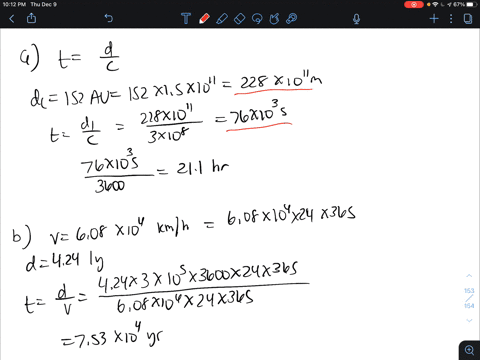 10:12 PM Thu Dec 9
67%
a) t = d/c
d₁ = 152 AU = 152 × 1.5 × 10¹¹ = 228 × 10¹¹ m
t = d₁/c = 228×10¹¹/3×10⁸ = 76×10³ s
76×10³ s/3600 = 21.1 hr
b) v = 6.08 × 10⁴ km/h = 6.08 × 10⁴ × 24 × 365
d = 4.24 ly
t = d/v = 4.24 × 3 × 10⁵ × 3600 × 24 × 365/6.08 × 10⁴ × 24 × 365
= 7.53 × 10⁴ yr
153
/
154